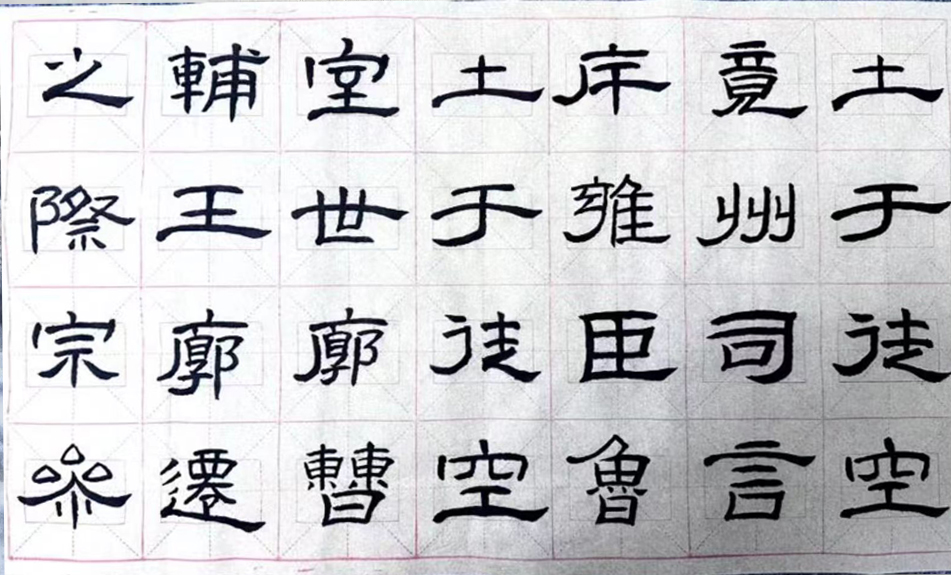 土于徒空
竟州司言
庠雍臣魯
土于徒空
堂世廓曹
輔王廓遷
之際宗參